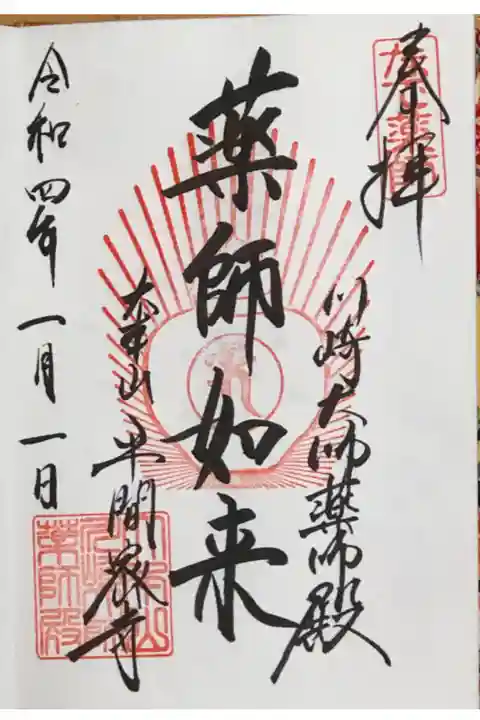 奉拝
川崎大師薬師殿
薬師如来
大本山平間寺
令和四年一月一日